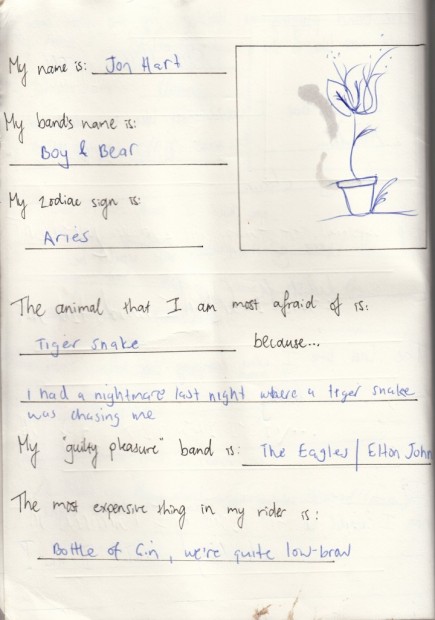 My name is: Jon Hart
My band's name is:
Boy & Bear
My zodiac sign is:
Aries
The animal that I am most afraid of is:
Tiger snake because...
I had a nightmare last night where a tiger snake
was chasing me
My "guilty pleasure" band is: The Eagles | Elton John
The most expensive thing in my rider is:
Bottle of Gin, we're quite low-brow